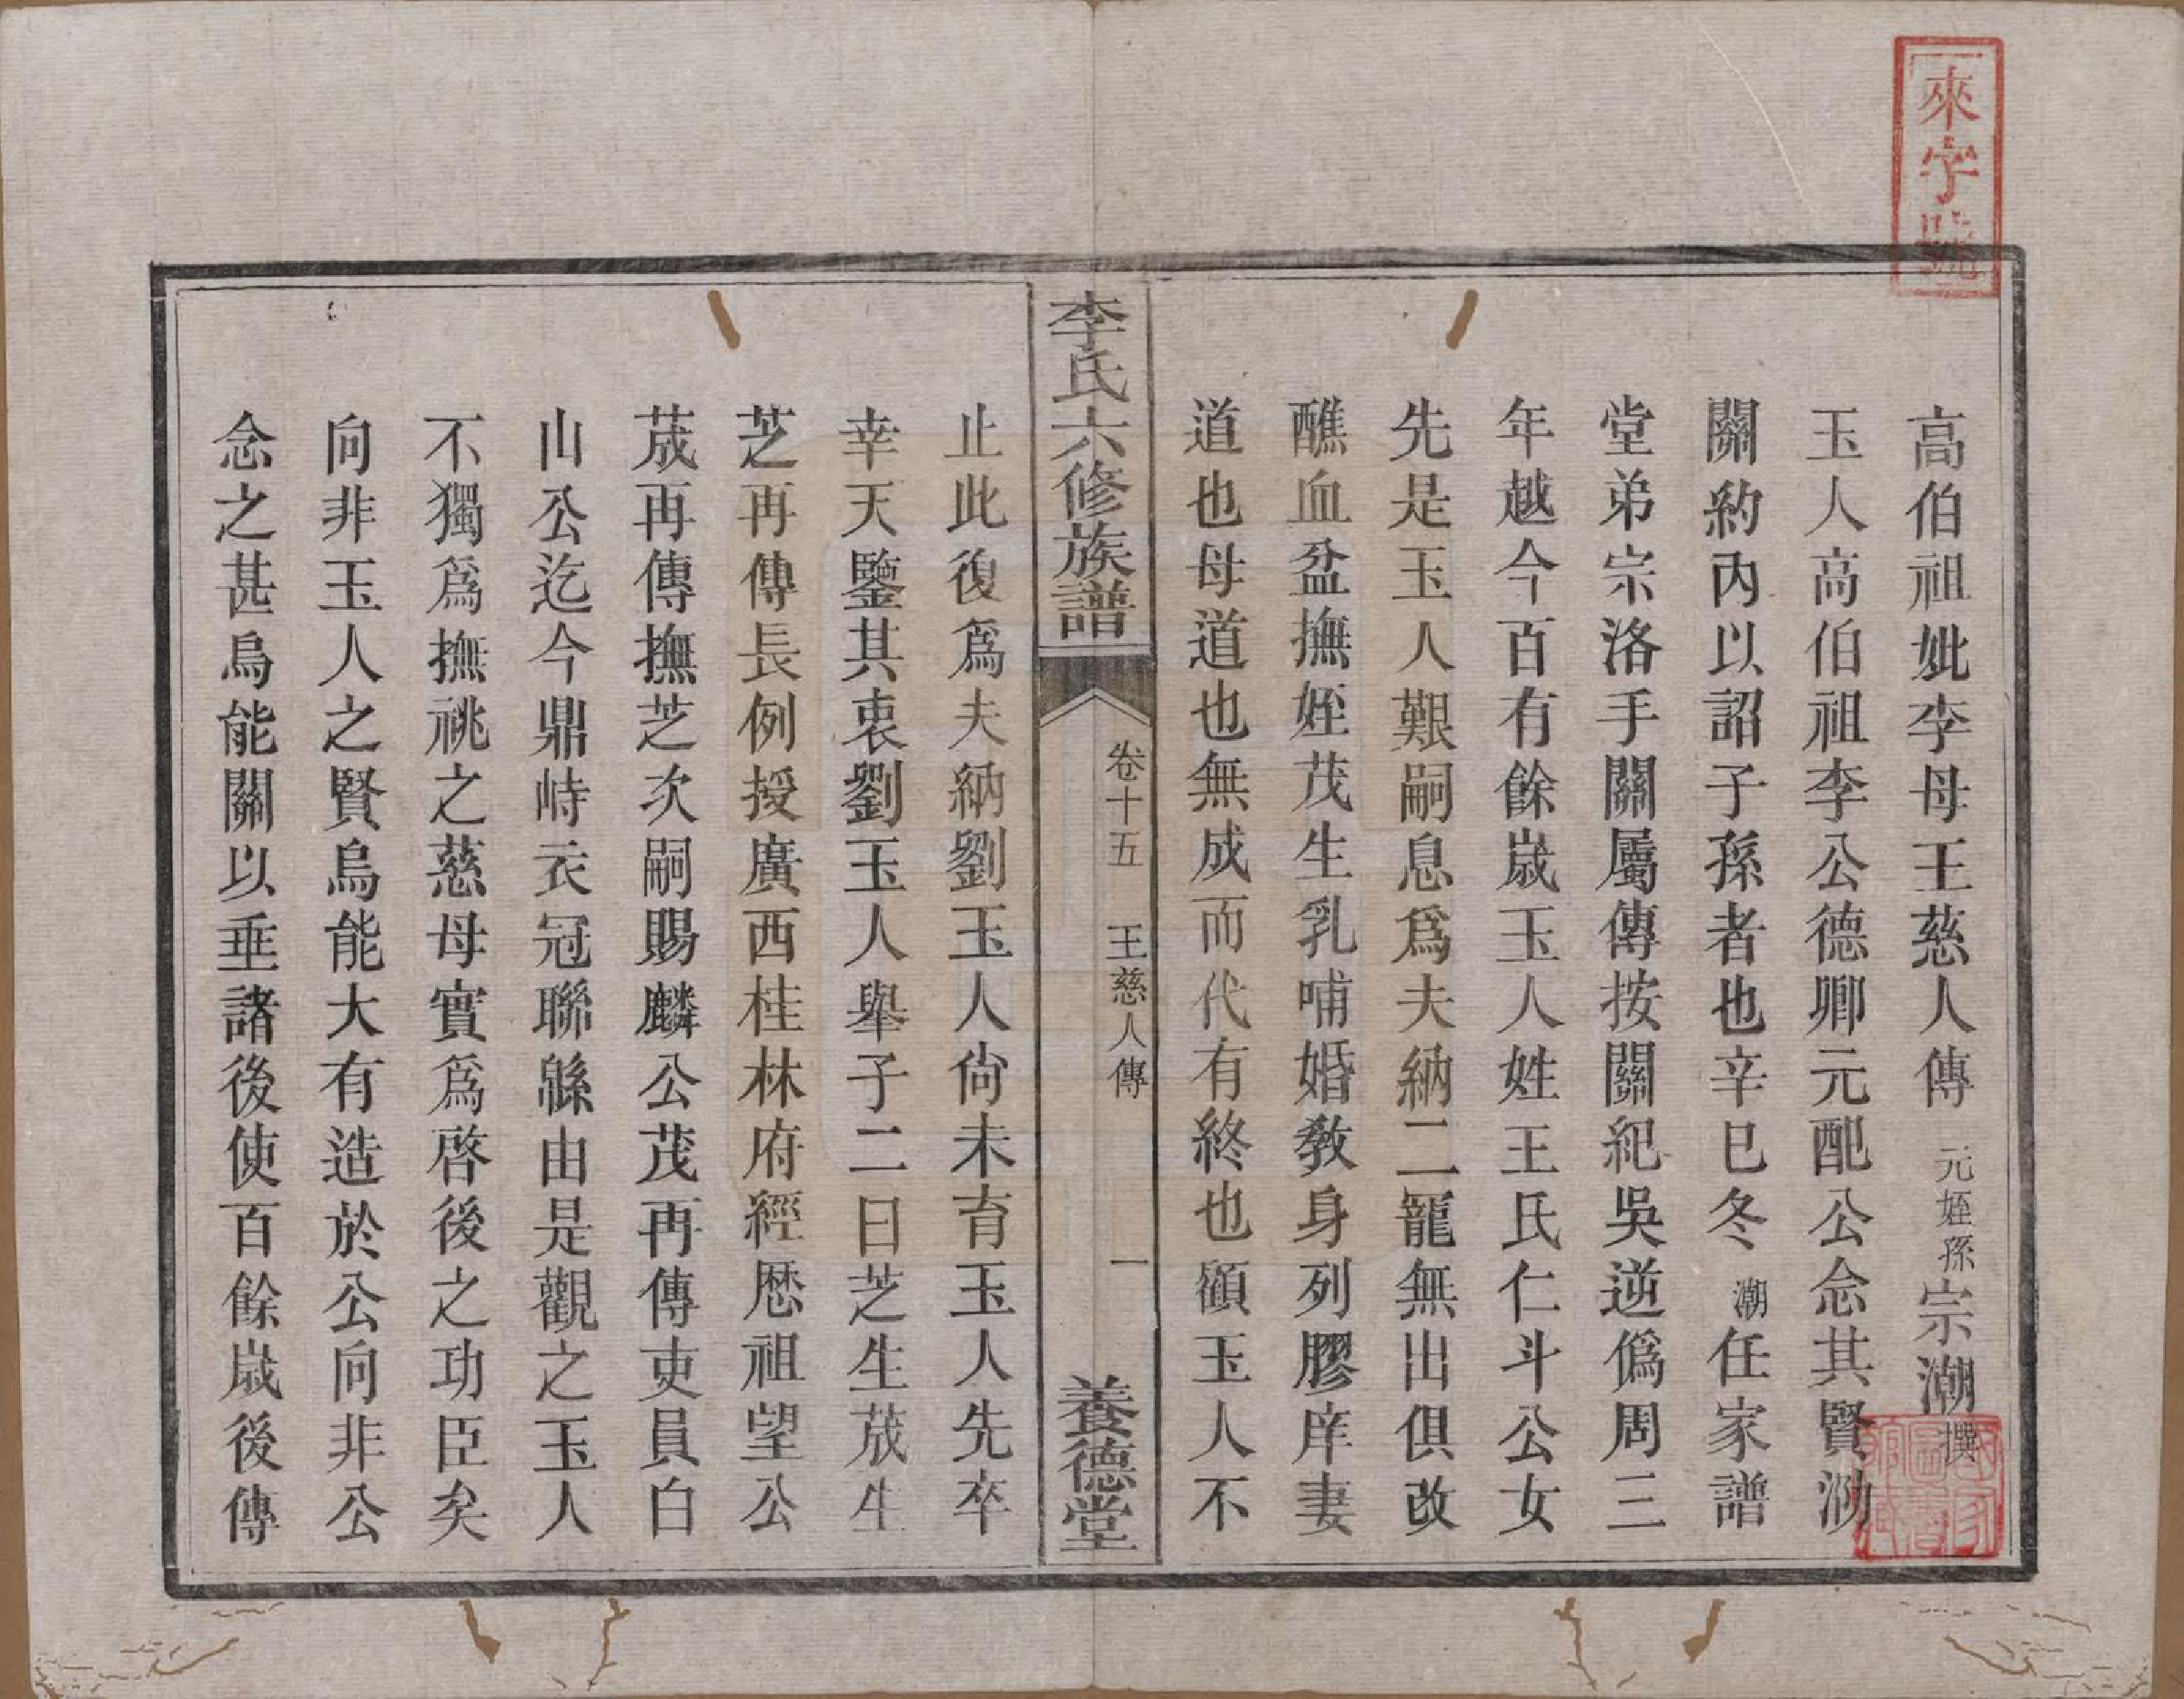 來字號
高伯祖妣李母王慈人傳 元姪孫宗潮撰
玉人高伯祖李公德卿元配公念其賢泐
關約內以詔子孫者也辛巳冬潮任家譜
堂弟宗洛手關屬傳按關紀吳逆僞周三
年越今百有餘歲玉人姓王氏仁斗公女
先是玉人艱嗣息爲夫納二寵無出俱改
醮血盆撫姪茂生乳哺婚教身列膠庠妻
道也母道也無成而代有終也顧玉人不
李氏六修族譜
卷十五 王慈人傳
一
養德堂
止此復爲夫納劉玉人尙未育玉人先卒
幸天鑒其衷劉玉人舉子二曰芝生荿生
芝再傳長例授廣西桂林府經歷祖望公
荿再傳撫芝次嗣賜麟公茂再傳吏員白
山公迄今鼎峙衣冠聯緜由是觀之玉人
不獨爲撫祧之慈母實爲啓後之功臣矣
向非玉人之賢烏能大有造於公向非公
念之甚烏能關以垂諸後使百餘歲後傳